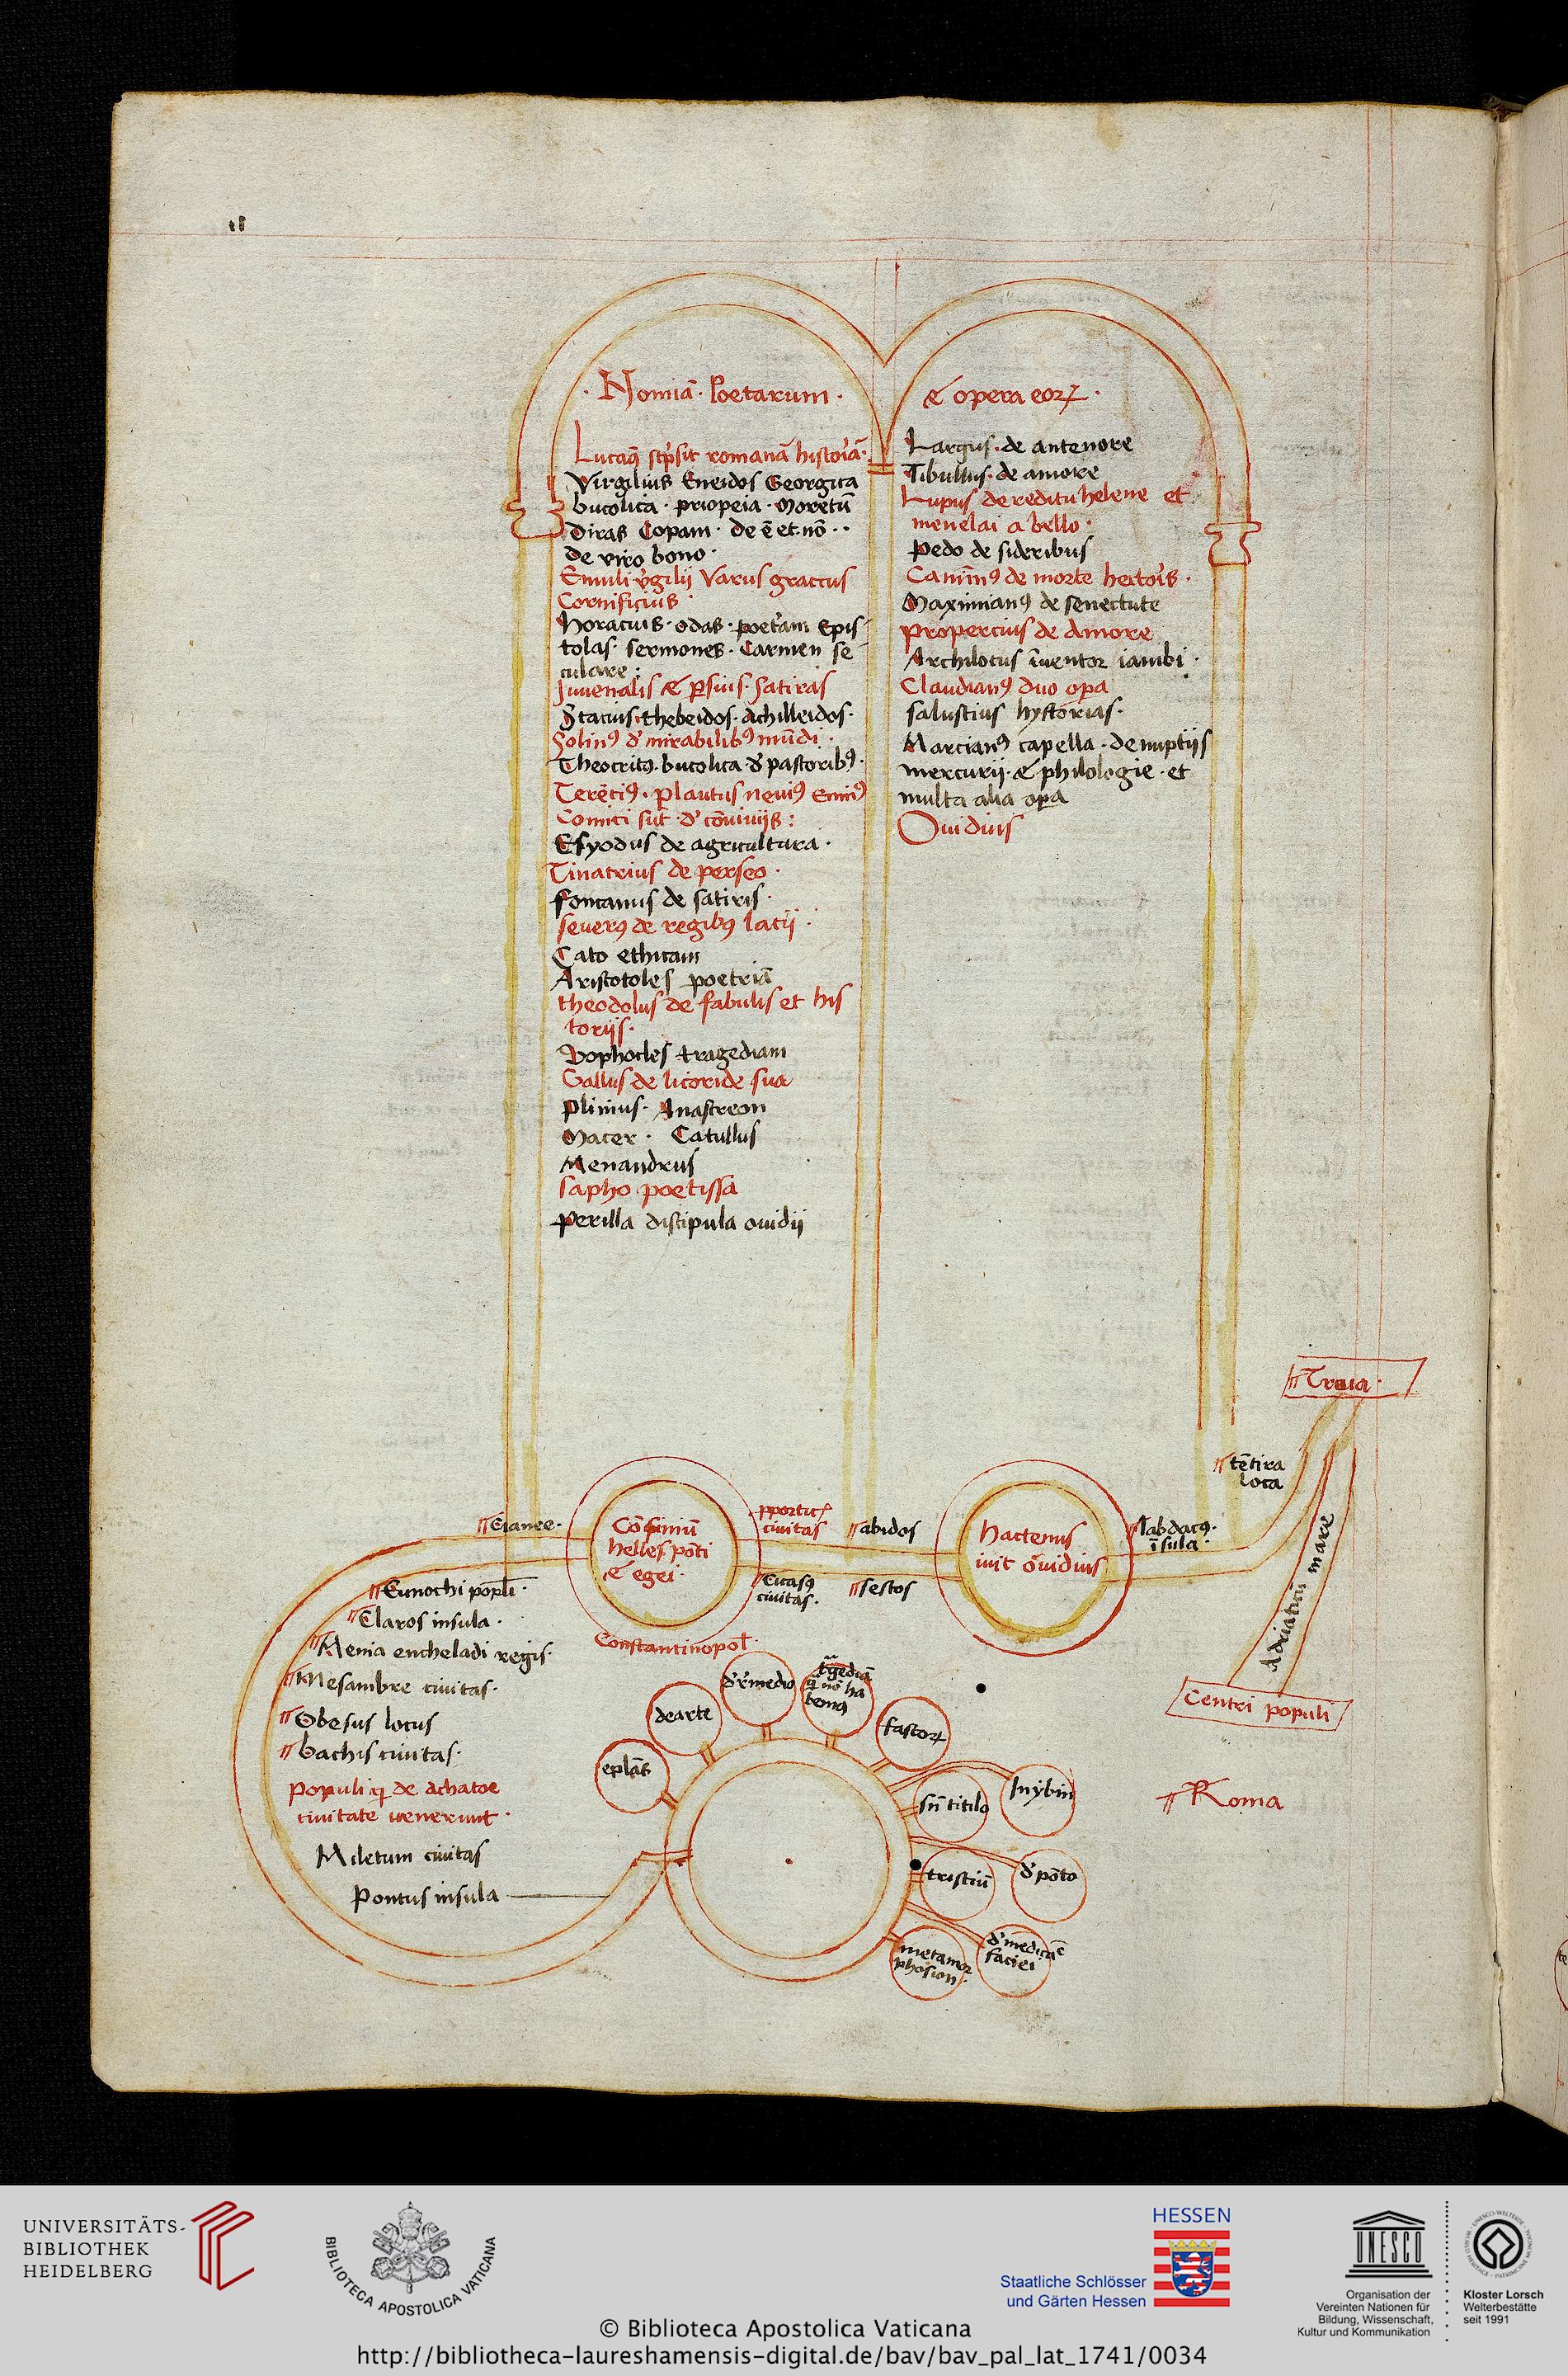 · Nomiā · Poetarum ·
Lucaꝯ sc̄psit romanā histoꝛiā ·
Virgilius Eneidos Georgica
bucolica · priopeia · Moretū
Diras Copam · de ē et nō ··
de viro bono ·
Emuli v̓gilij Varus graccus
Cornificius ·
Horacius · odas · poet̓am Epis
tolas · sermones · Carmen se
culare :
Juuenalis & ꝑsius · Satiras
Stacius · thebeidos · Achilleidos ·
Solinꝰ d̓ mirabilibꝰ mūdi ·
Theocritꝰ · bucolica d̓ pastoribꝰ ·
Terētiꝰ · plautus neuiꝰ Enniꝰ
Comici sūt d̓ cōuiuijs :
Esyodus de agricultura ·
Tinatrius de perseo ·
fontanus de satiris ·
seuerꝰ de regibꝰ latij ·
Cato ethicam
Aristotoles poetriā
theodolus de fabulis et his
torijs ·
Sophocles tragediam
Gallus de licoride sua
plinius · Anastreon
Macer · Catullus
Menandrus
sapho poetissa
perilla discipula ouidij
& opera eoꝝ ·
Largus · de antenore
Tibullus · de amore
Lupus de reditu helene et
menelai a bello ·
pedo de sideribus
Camīnꝰ de morte hectoꝛis ·
Maximianꝰ de senectute
propercius de Amore
Archilocus īuentor iambi ·
Claudianꝰ duo oꝑa
salustius hystorias ·
Marcianꝰ capella · de nuptijs
mercurij · & philologie · et
multa alia oꝑa
Ouidius
Troia ·
tētira
loca
Cianee ·
Cōfiniū
helles pōti
& egei ·
civitas
abidos
Cicasꝰ
ciuitas ·
sestos
Hactenus
iuit ouidius
labdacꝰ ·
īsula ·
Adriaticū mare
Centri populi
Constantinopoł ·
Eunochi popłi ·
Claros insula ·
Menia encheladi regis ·
Mesambre ciuitas ·
Obesus locus
bachis ciuitas ·
populi ꝗ de achatoe
ciuitate uenerunt ·
Miletum ciuitas
Pontus insula
epłas
de arte
d̓ r̓medio
t̓gediā
ꝗ̄ nō ha
bemꝰ
fastoꝝ
sn̄ titulo
In ybin
tristiū
d̓ pōto
metamor
phosion ·
d̓ medicāē
faciei
Roma
UNIVERSITÄTS-
BIBLIOTHEK
HEIDELBERG
BIBLIOTECA APOSTOLICA VATICANA
HESSEN
Staatliche Schlösser
und Gärten Hessen
UNESCO
Organisation der
Vereinten Nationen für
Bildung, Wissenschaft,
Kultur und Kommunikation
Kloster Lorsch
Welterbestätte
seit 1991
© Biblioteca Apostolica Vaticana
http://bibliotheca-laureshamensis-digital.de/bav/bav_pal_lat_1741/0034